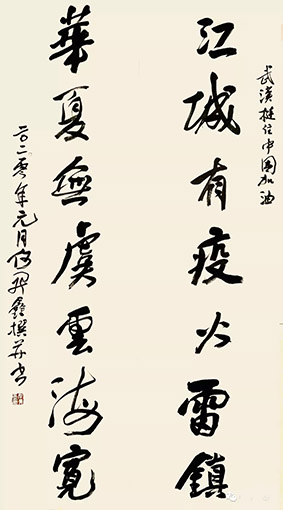 武漢挺住中国加油
江城有疫火雷鎮
華夏無虞雲海寬
二〇二零年元月撰并书